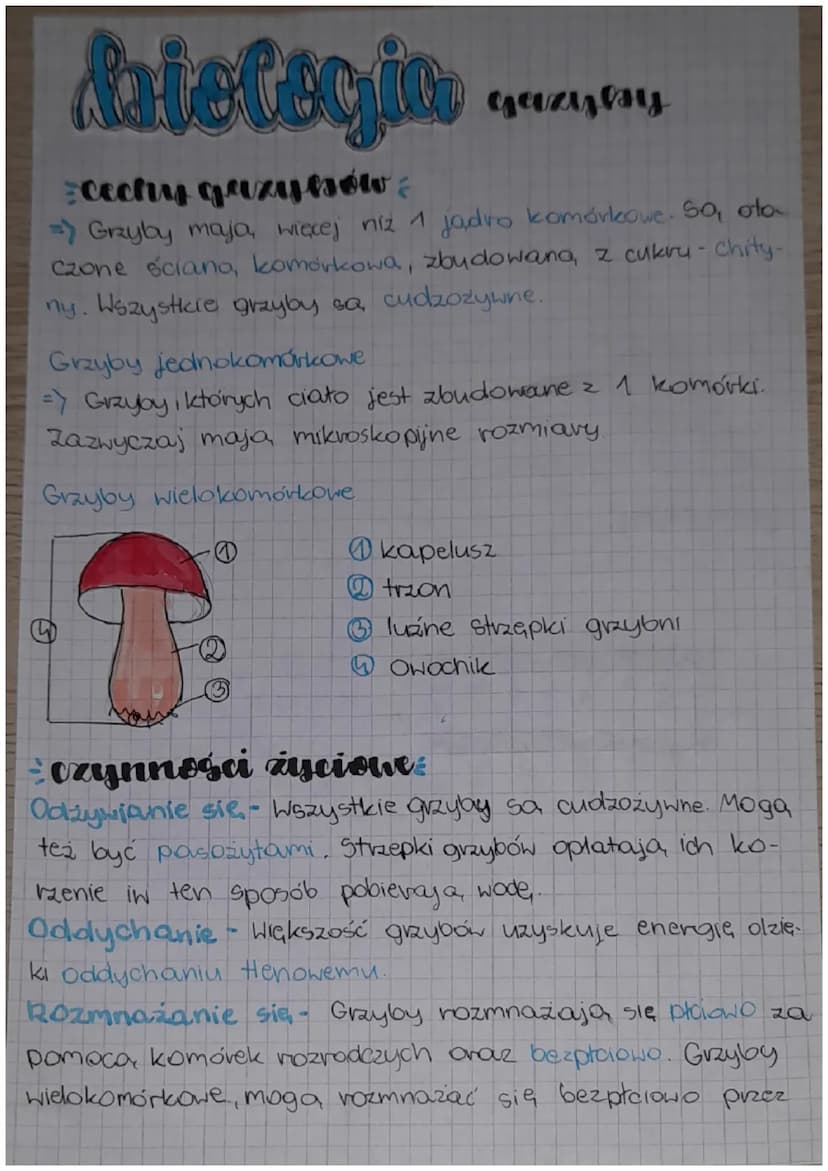 biologia grzyby
cechy grzybów
=> Grzyby mają więcej niż 1 jądro komórkowe. Są oto-
czone ścianą komórkową, zbudowaną z cukru - chity-
ny. Wszystkie grzyby są cudzożywne.
Grzyby jednokomórkowe
=> Grzyby, których ciało jest zbudowane z 1 komórki.
Zazwyczaj mają mikroskopijne rozmiary
Grzyby wielokomórkowe
1 1 kapelusz
2 trzon
4 3 luźne strzępki grzybni
2 4 owocnik
3
czynności życiowe
Odżywianie się - Wszystkie grzyby są cudzożywne. Mogą
też być pasożytami. Strzępki grzybów oplatają ich ko-
rzenie iw ten sposób pobierają wodę.
Oddychanie - Większość grzybów uzyskuje energię dzię-
ki oddychaniu tlenowemu.
Rozmnażanie się - Grzyby rozmnażają się płciowo za
pomocą komórek rozrodczych oraz bezpłciowo. Grzyby
wielokomórkowe, mogą rozmnażać się bezpłciowo przez